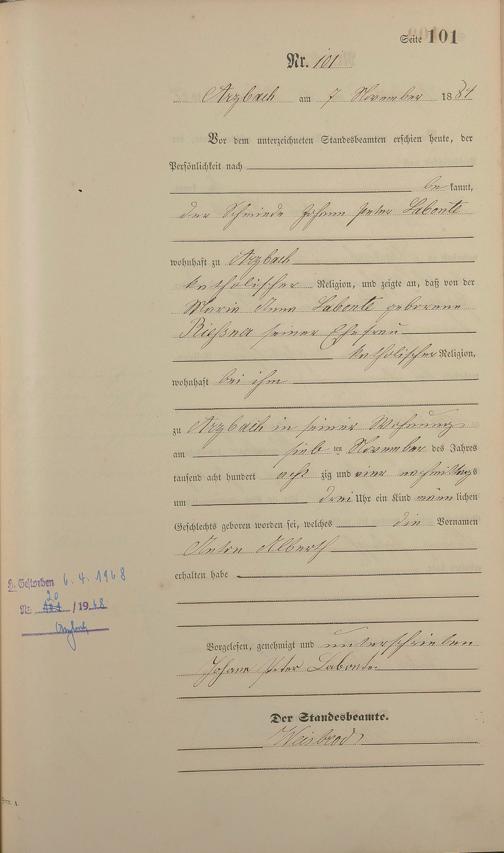 Seite 101
Nr. 101
Arzbach am 7 November 1884
Vor dem unterzeichneten Standesbeamten erschien heute, der
Persönlichkeit nach
bekannt,
der Schmiede Johann Peter Labonte
wohnhaft zu Arzbach
katholischer Religion, und zeigte an, daß von der
Maria Anna Labonte geborene
seiner Ehefrau
katholischer Religion,
wohnhaft bei ihm
zu Arzbach in seiner Wohnung
am sieb ten November des Jahres
tausend acht hundert acht zig und vier nachmittags
um drei Uhr ein Kind männlichen
Geschlechts geboren worden sei, welches die Vornamen
Anton Alberth
erhalten habe
Gestorben 6.4.1968
20
Nr. /1968
Arzbach
Vorgelesen, genehmigt und unterschrieben
Johann Peter Labonte
Der Standesbeamte.
Weisbrod